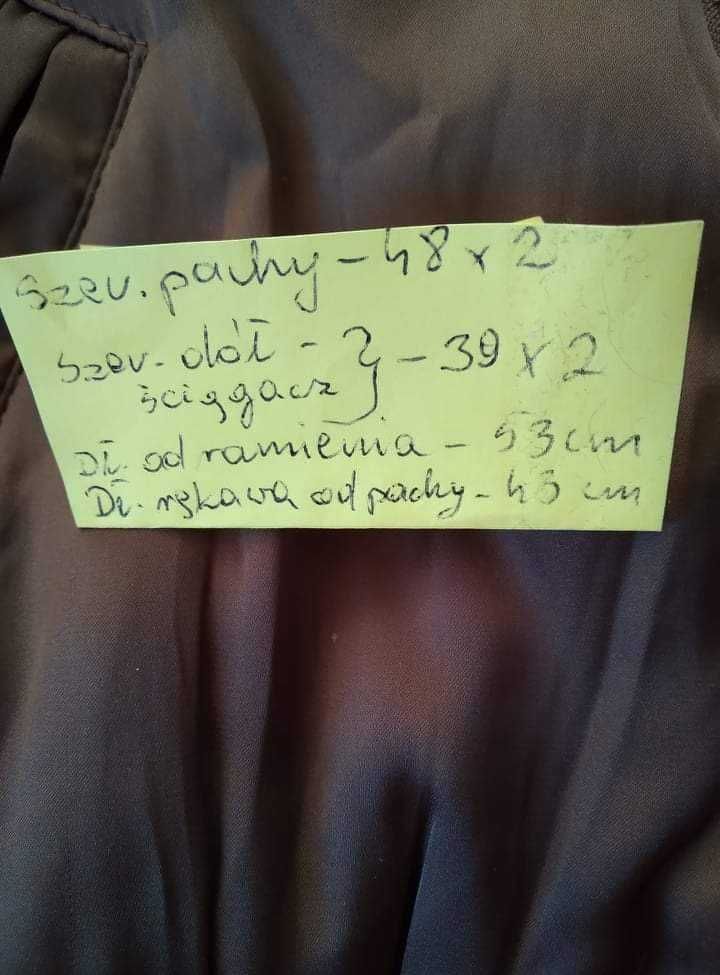 Szer. pachy - 48 x 2
Szer. dół - } - 39 x 2
ściągacz
Dł. od ramienia - 53 cm
Dł. rękawa od pachy - 43 cm